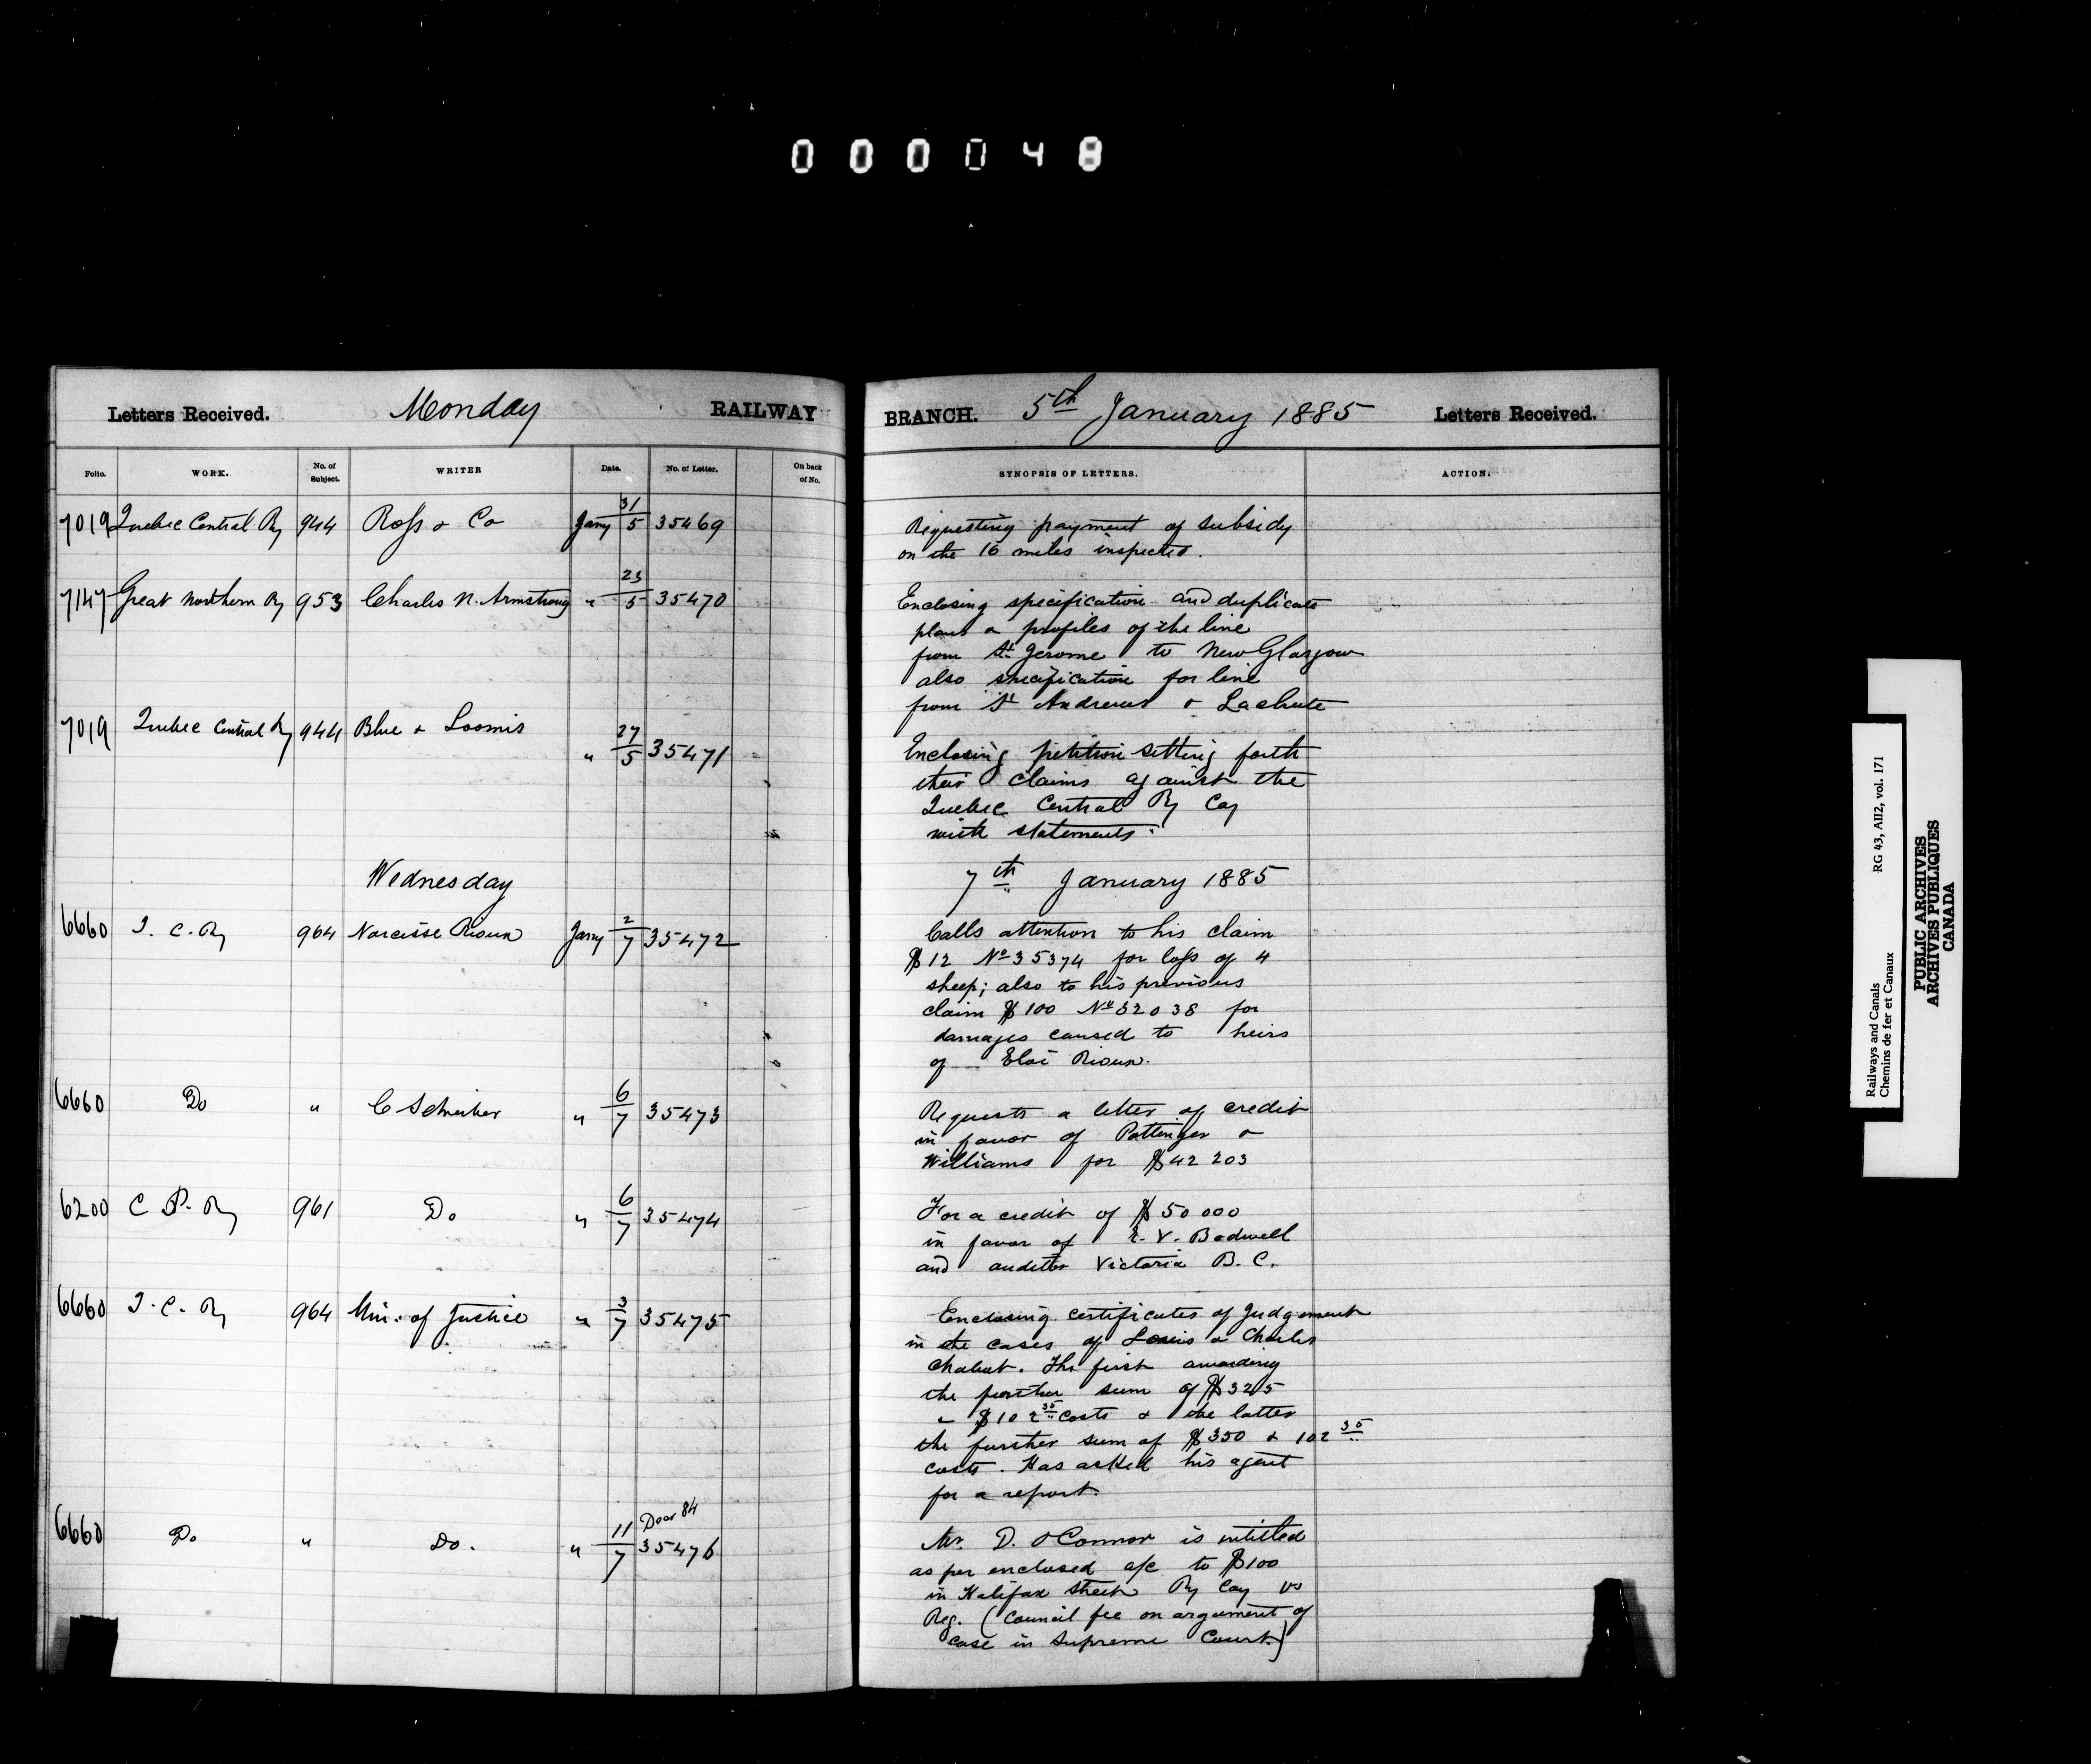 000048
Letters Received. Monday RAILWAY BRANCH. 5th January 1885 Letters Received.
Folio. WORK. No. of Subject. WRITER Date. No. of Letter. On back of No. SYNOPSIS OF LETTERS. ACTION.
7019 Quebec Central Ry 944 Ross & Co Jany 31/5 35469 Requesting payment of subsidy
on the 16 miles inspected.
7147 Great Northern Ry 953 Charles N. Armstrong " 23/5 35470 Enclosing specification and duplicate
plans & profiles of the line
from St. Jerome to New Glasgow
also specification for line
from St Andrews & Lachute
7019 Quebec Central Ry 944 Blue & Loomis " 27/5 35471 Enclosing petition setting forth
their claims against the
Quebec Central Ry Coy
with statements.
Wednesday 7th January 1885
6660 I. C. Ry 964 Narcisse Rioux Jany 2/7 35472 Calls attention to his claim
$12 No 35374 for loss of 4
sheep; also to his previous
claim $100 No 32038 for
damages caused to heirs
of Eloi Rioux.
6660 Do " C Schreiber " 6/7 35473 Requests a letter of credit
in favor of Pottinger &
Williams for $42203
6200 C P. Ry 961 Do " 6/7 35474 For a credit of $50000
in favor of E. V. Bodwell
and auditor Victoria B. C.
6660 I. C. Ry 964 Min. of Justice " 3/7 35475 Enclosing certificates of Judgement
in the cases of Louis & Charles
Chabot. The first awarding
the further sum of $325
& $102 35 costs & the latter
the further sum of $350 & 102 35
costs. Has asked his agent
for a report.
6660 Do " Do. " 11/7 Decr 84 35476 Mr. D. O'Connor is intitled
as per enclosed a/c to $100
in Halifax Street Ry Coy vs
Reg. (Council fee on argument of
case in Supreme Court.)
Railways and Canals RG 43, AII2, vol. 171
Chemins de fer et Canaux
PUBLIC ARCHIVES
ARCHIVES PUBLIQUES
CANADA